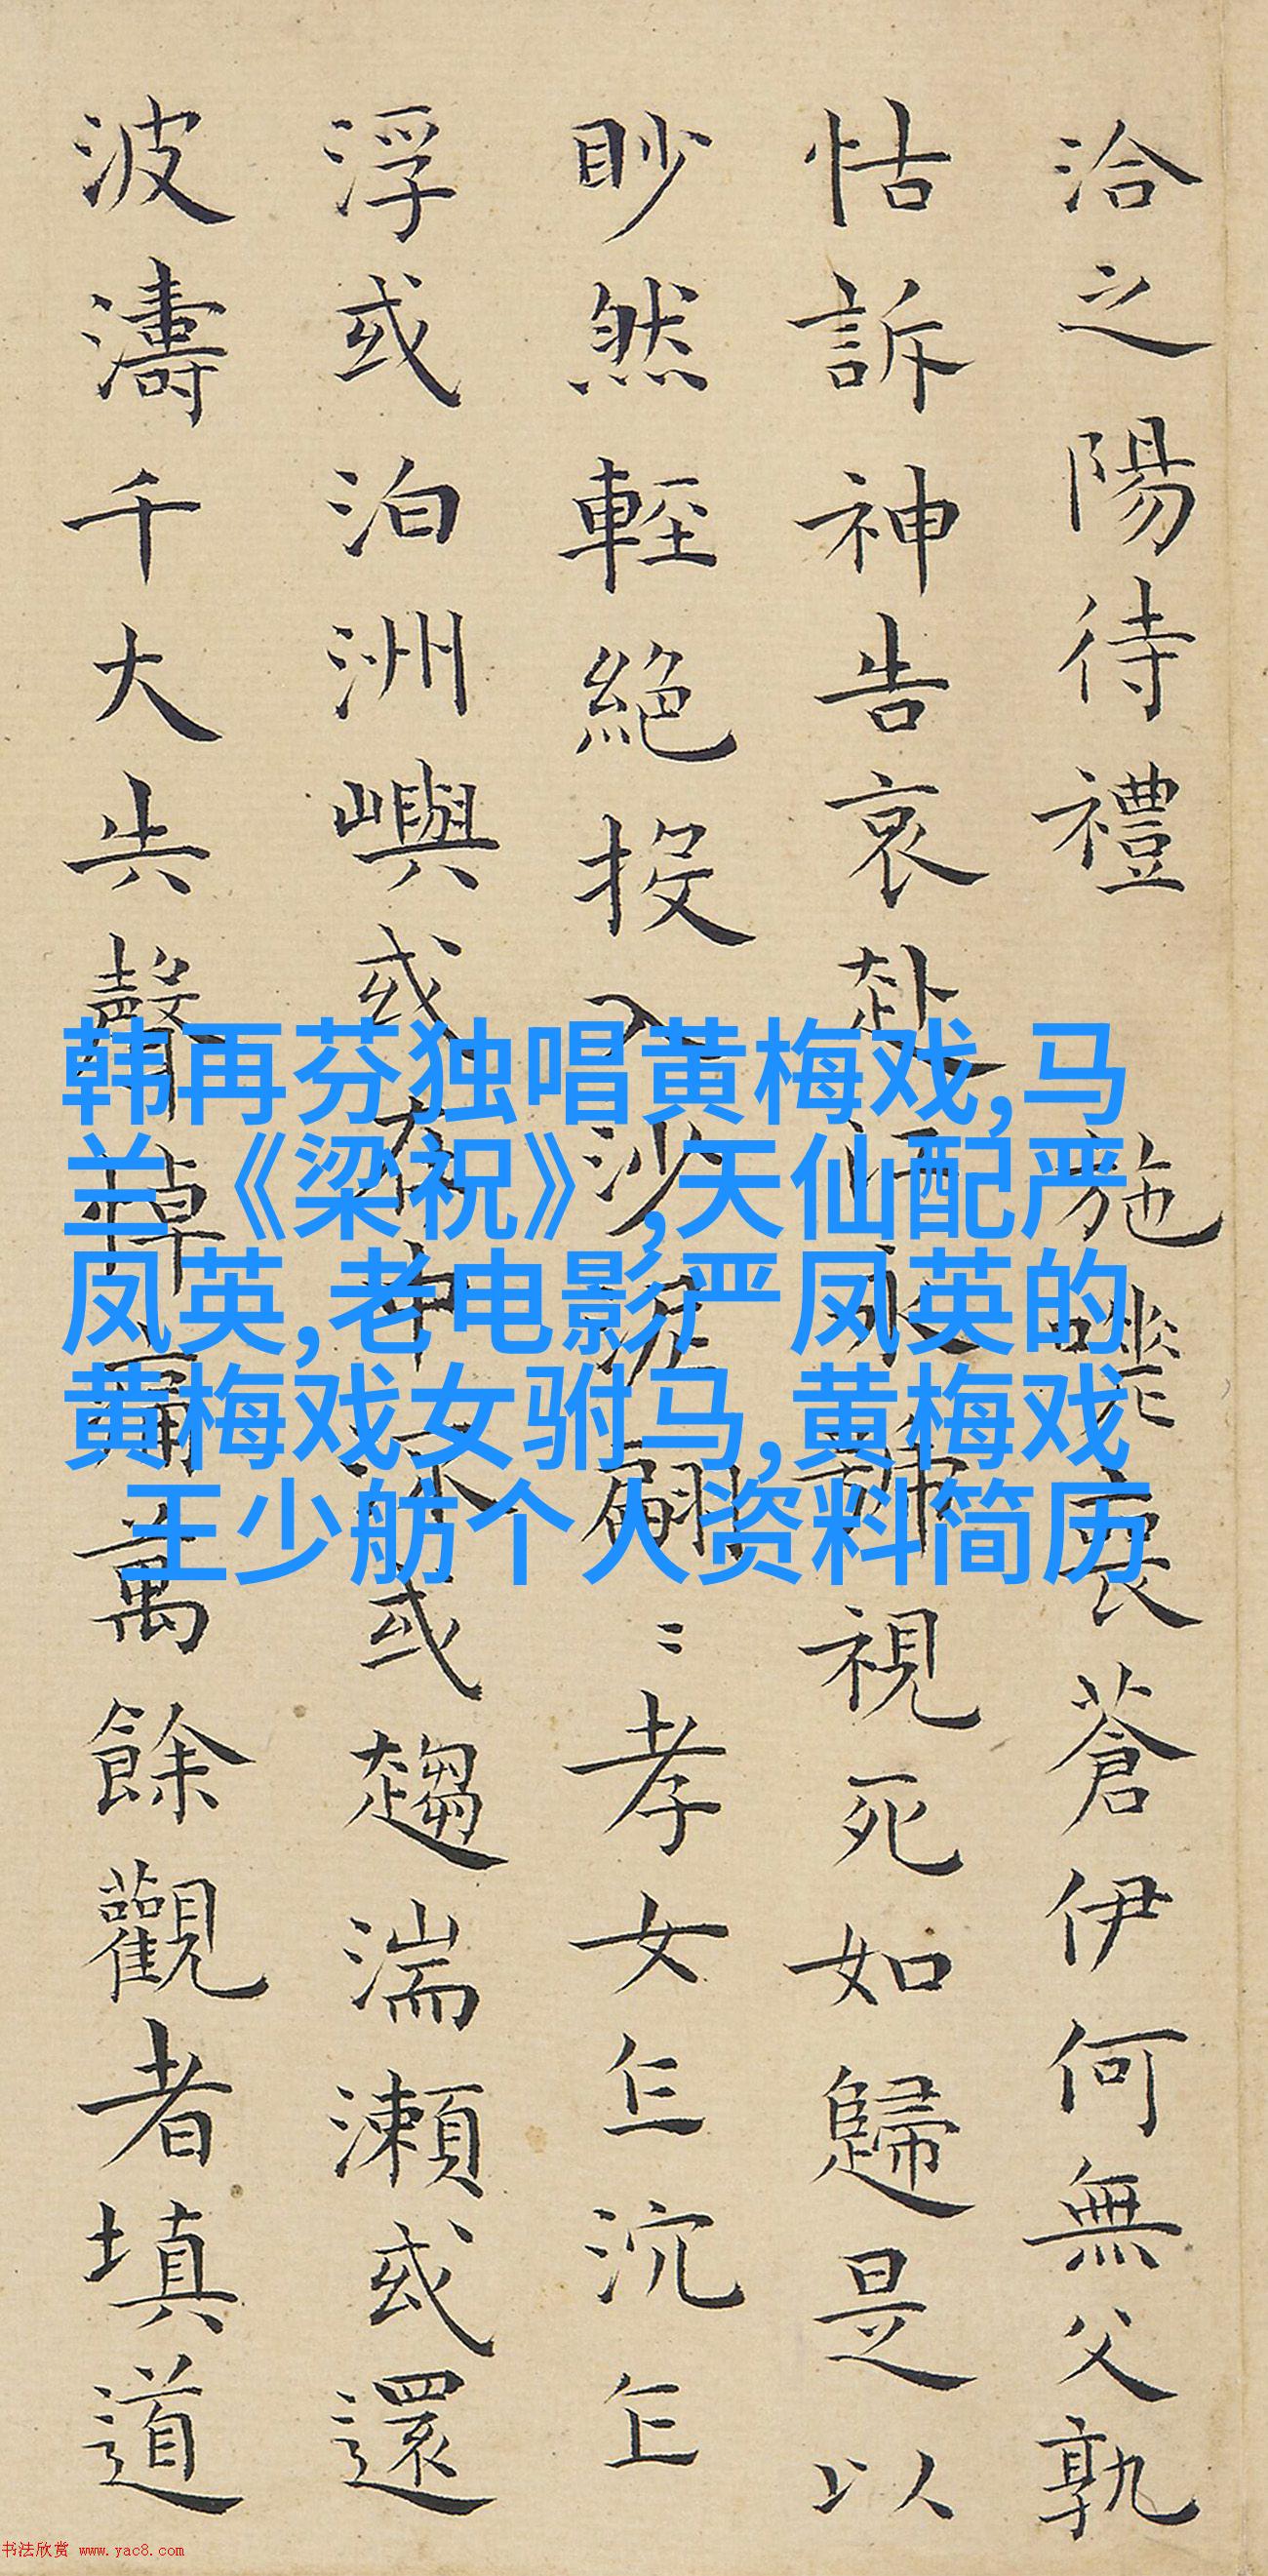 洽之陽待禮 施嗟喪蒼伊何無父孰
怙訴神告哀赴江永號視死如歸是以
眇然輕絕投入沙泥翩〻孝女乍沉乍
浮或泊洲嶼或在中流或趨湍瀨或還
波濤千大失聲悼痛萬餘觀者填道
韩再芬独唱黄梅戏,马
兰《梁祝》,天仙配严
凤英,老电影严凤英的
黄梅戏女驸马,黄梅戏
王少舫个人资料简历
书法欣赏 www.yac8.com